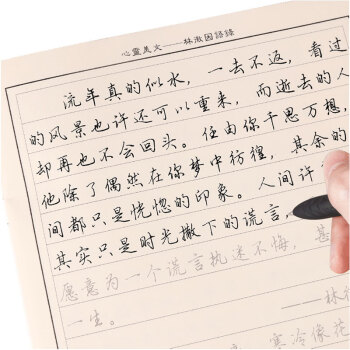 心灵美文——林徽因语录
流年真的似水，一去不返，看过
的风景也许还可以重来，而逝去的人
却再也不会回头。任由你千思万想，
他除了偶然在你梦中彷徨，其余的
间都只是恍惚的印象。人间许
其实只是时光撒下的谎言，
愿意为一个谎言执迷不悔，甚
一生。
——林徽
寒冷像花